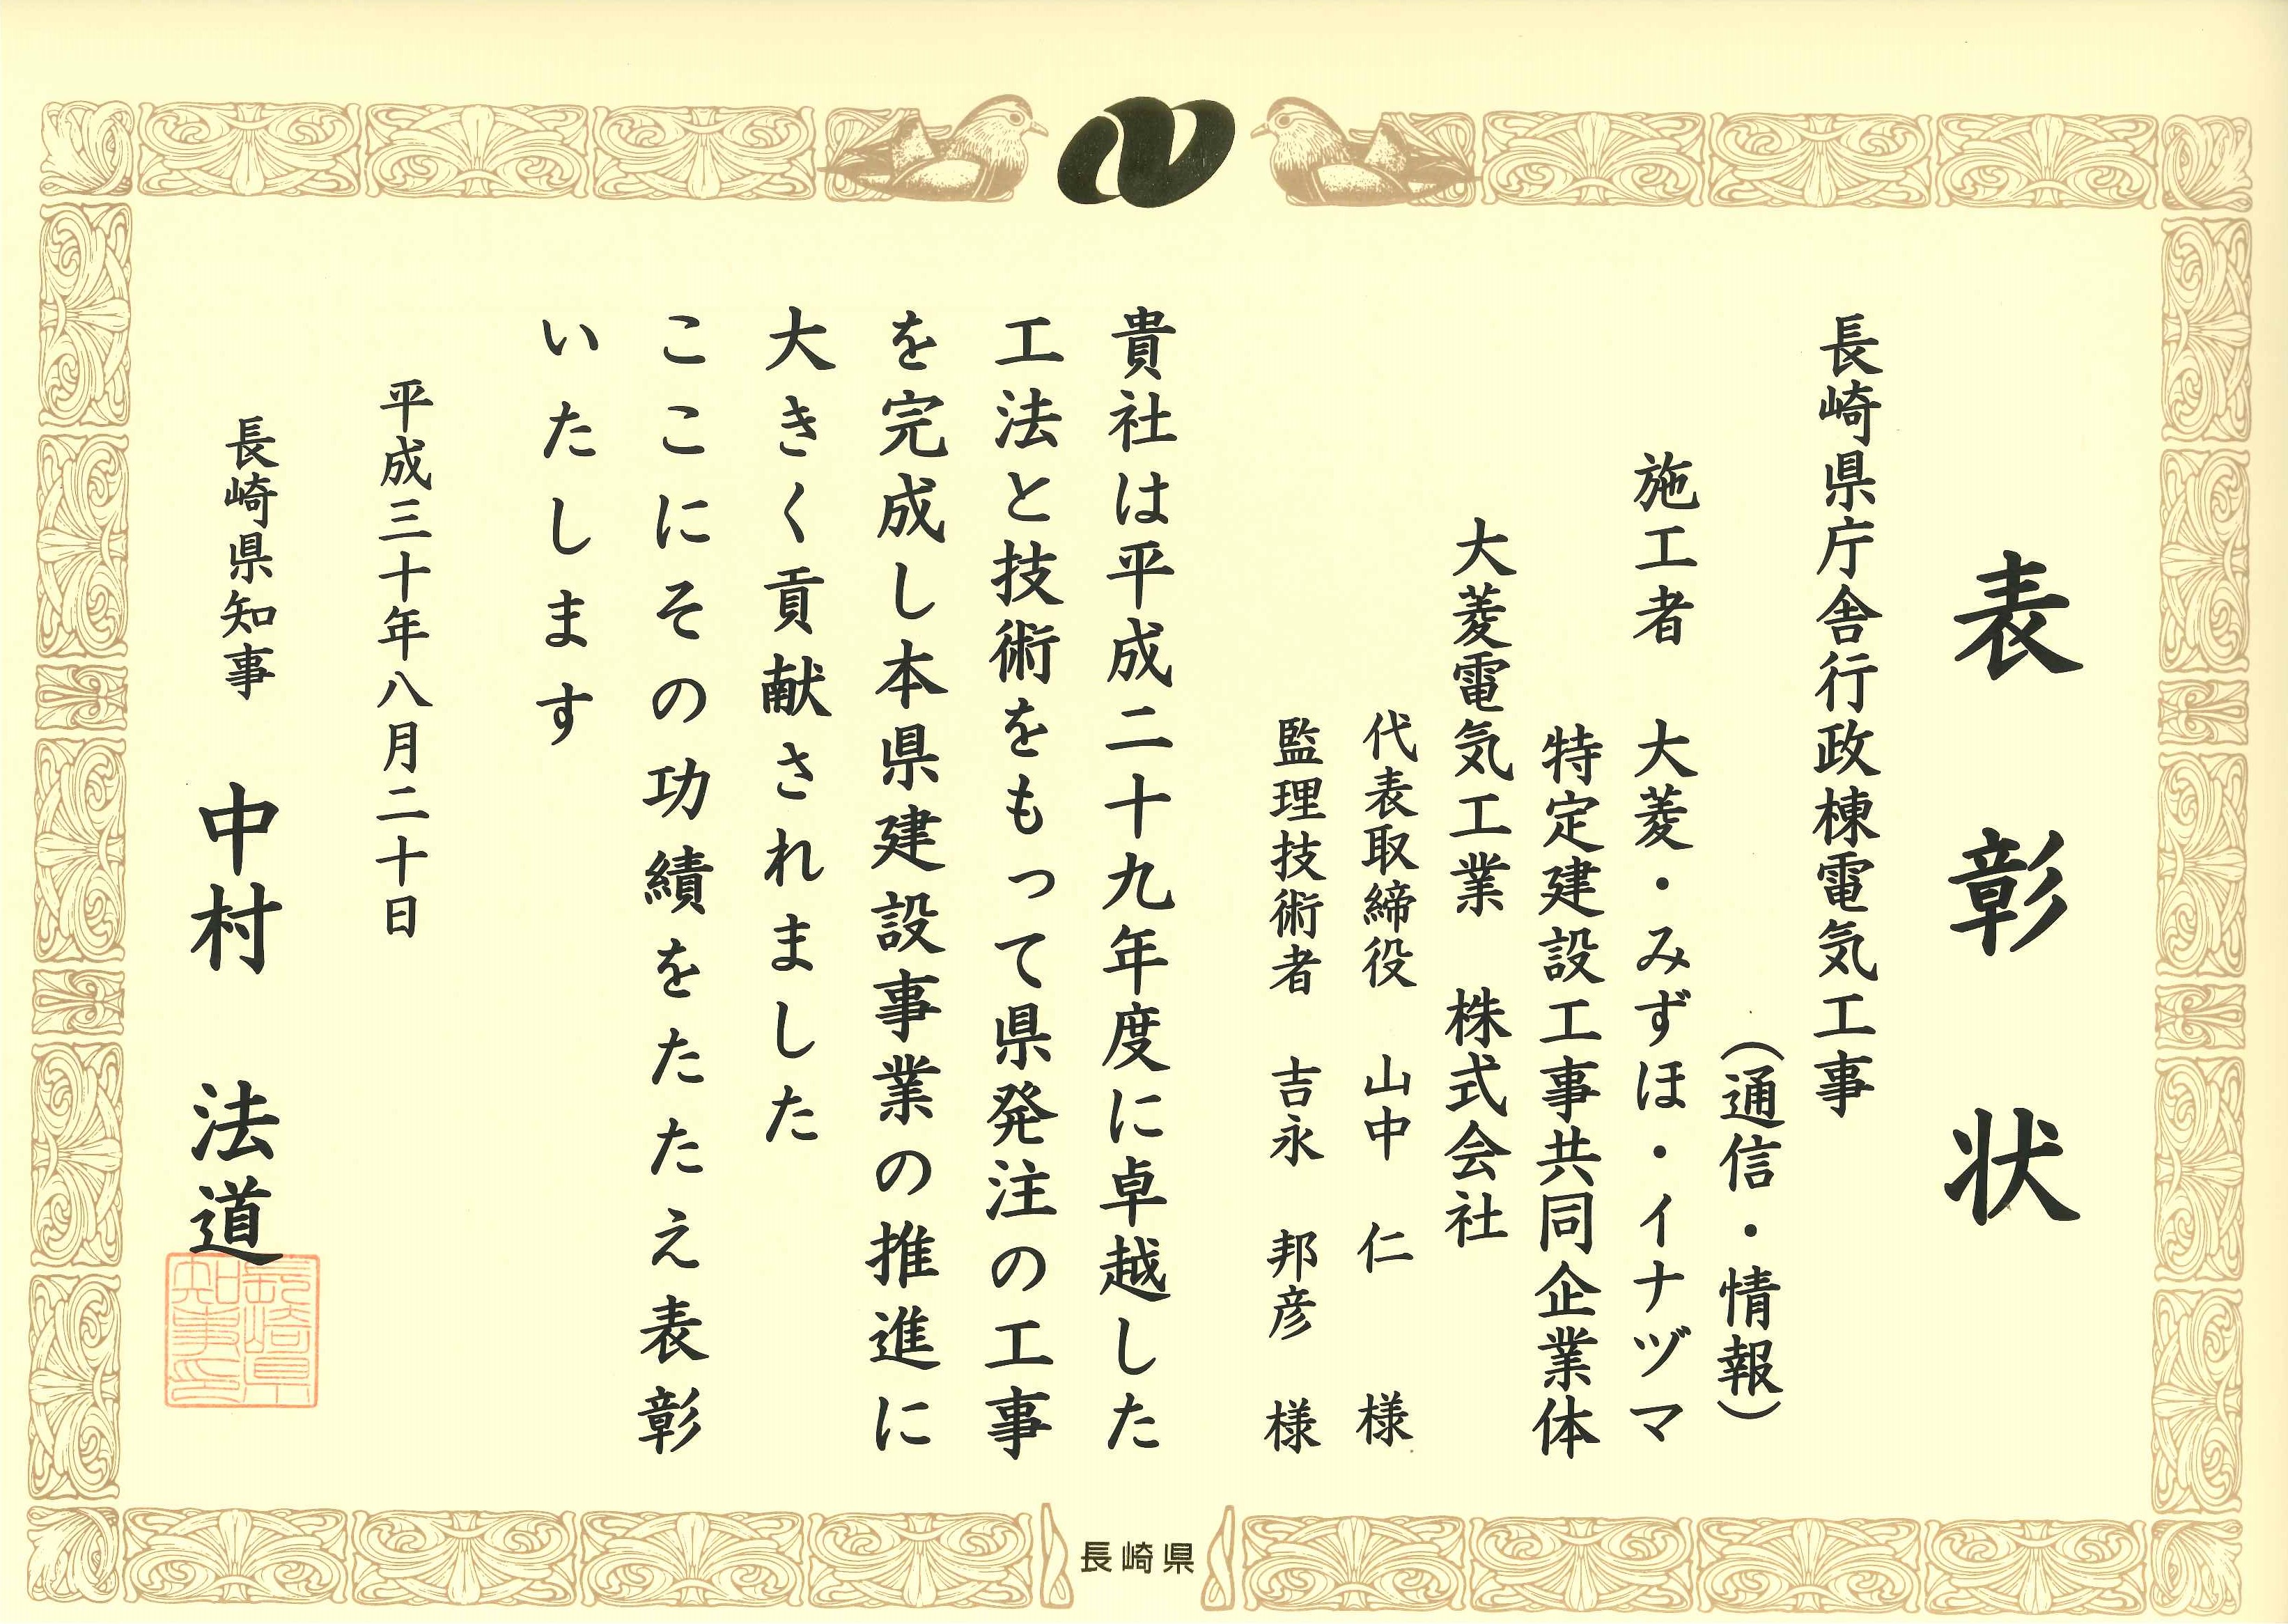 表彰状
長崎県庁舎行政棟電気工事
（通信・情報）
施工者　大菱・みずほ・イナヅマ
特定建設工事共同企業体
大菱電気工業　株式会社
代表取締役　山中　仁　様
監理技術者　吉永　邦彦　様
貴社は平成二十九年度に卓越した
工法と技術をもって県発注の工事
を完成し本県建設事業の推進に
大きく貢献されました
ここにその功績をたたえ表彰
いたします
平成三十年八月二十日
長崎県知事　中村　法道
長崎県知事印
長崎県